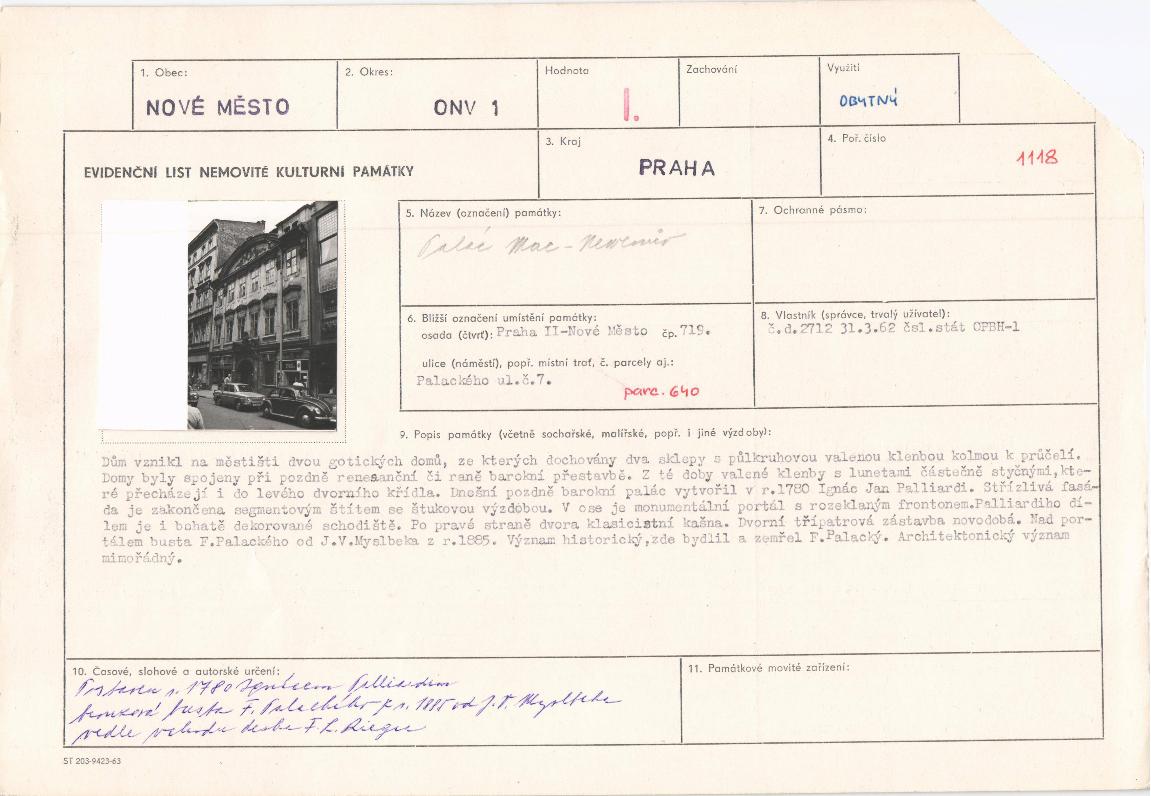 1. Obec:
NOVÉ MĚSTO
2. Okres:
ONV 1
Hodnota
I.
Zachování
Využití
OBYTNÝ
EVIDENČNÍ LIST NEMOVITÉ KULTURNÍ PAMÁTKY
3. Kraj
PRAHA
4. Poř. číslo
1118
5. Název (označení) památky:
Palác Mac-Neveniů
7. Ochranné pásmo:
6. Bližší označení umístění památky:
osada (čtvrť): Praha II-Nové Město čp. 719.
ulice (náměstí), popř. místní trať, č. parcely aj.:
Palackého ul.č.7.
parc. 640
8. Vlastník (správce, trvalý uživatel):
č.d.2712 31.3.62 čsl.stát OPBH-1
9. Popis památky (včetně sochařské, malířské, popř. i jiné výzdoby):
Dům vznikl na městišti dvou gotických domů, ze kterých dochovány dva sklepy s půlkruhovou valenou klenbou kolmou k průčelí.
Domy byly spojeny při pozdně renesanční či raně barokní přestavbě. Z té doby valené klenby s lunetami částečně styčnými,kte-
ré přecházejí i do levého dvorního křídla. Dnešní pozdně barokní palác vytvořil v r.1780 Ignác Jan Palliardi. Střízlivá fasá-
da je zakončena segmentovým štítem se štukovou výzdobou. V ose je monumentální portál s rozeklaným frontonem.Palliardiho dí-
lem je i bohatě dekorované schodiště. Po pravé straně dvora klasicistní kašna. Dvorní třípatrová zástavba novodobá. Nad por-
tálem busta F.Palackého od J.V.Myslbeka z r.1885. Význam historický,zde bydlil a zemřel F.Palacký. Architektonický význam
mimořádný.
10. Časové, slohové a autorské určení:
Postaven r. 1780 Ignácem Palliardim
bronzová busta F. Palackého z r. 1885 od J. V. Myslbeka
vedle vchodu deska F. L. Riegra
11. Památkové movité zařízení:
ST 203-9423-63